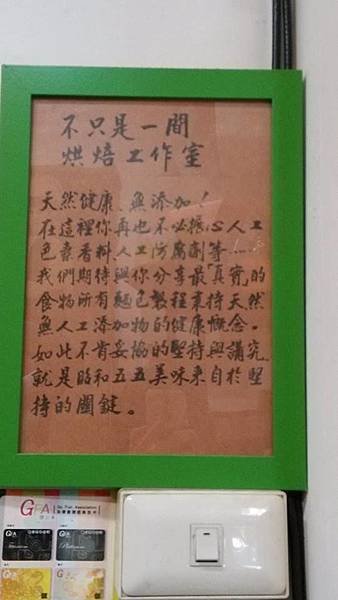 不只是一間
烘焙工作室
天然健康、無添加！
在這裡你再也不必擔心人工
色素香料人工防腐劑等……
我們期待與你分享最「真實」的
食物所有麵包製程秉持天然
無人工添加物的健康概念。
如此不肯妥協的堅持與講究
就是昀和五五美味來自於堅
持的關鍵。
GFA